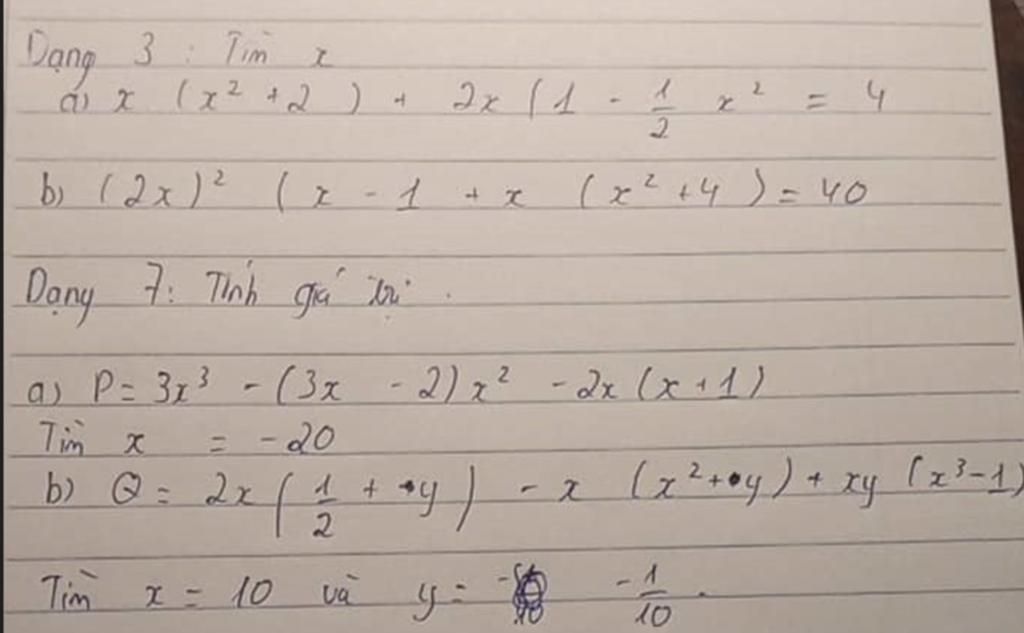 Dạng 3 : Tìm x
a) x (x² + 2 ) + 2x (1 - 1/2 x² = 4
b) (2x)² ( x - 1 + x (x² + 4 ) = 40
Dạng 7: Tính giá trị.
a) P = 3x³ - (3x - 2) x² - 2x (x + 1)
Tìm x = -20
b) Q = 2x ( 1/2 + y ) - x (x² + y ) + xy (x³ - 1)
Tìm x = 10 và y = - 1/10 .